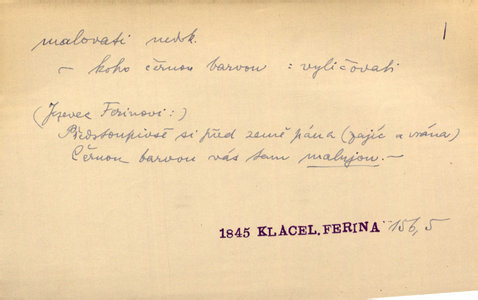 1
malovati nedok.
– koho černou barvou : vyličovati
(Jezevec Ferinovi:)
Předstoupivše si před země pána (zajíc a vrána)
Černou barvou vás tam malujou. –
1845 KLÁCEL, FERINA 156,5